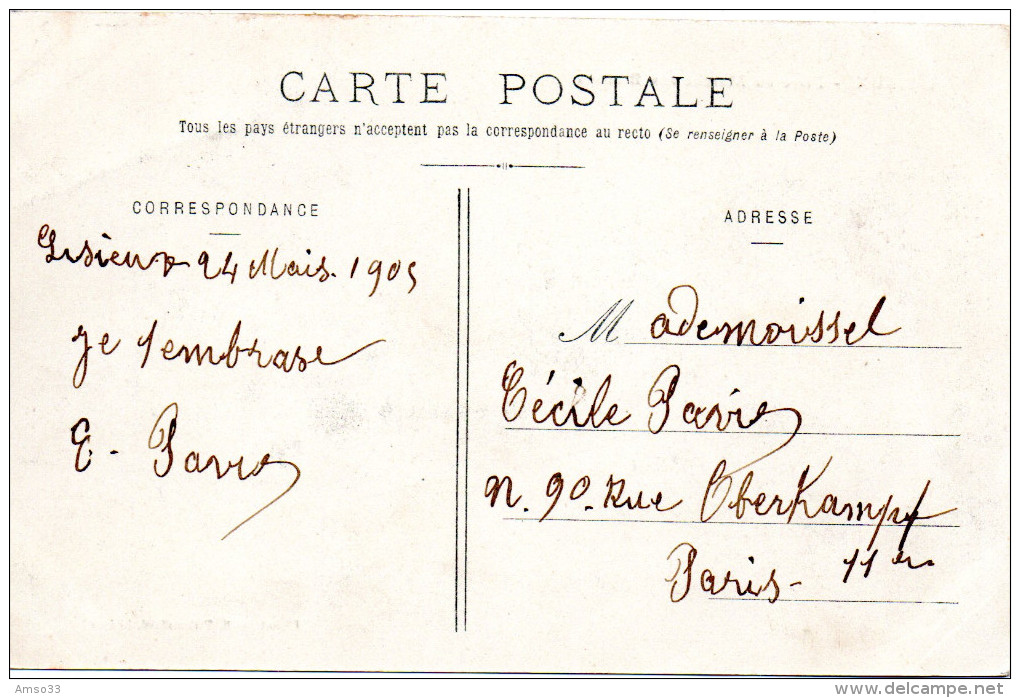 CARTE POSTALE
Tous les pays étrangers n'acceptent pas la correspondance au recto (Se renseigner à la Poste)
CORRESPONDANCE
Lisieux 24 Mais. 1905
je t'embrase
E. Pavie
ADRESSE
Mademoissel
Cécile Pavie
N. 90. Rue Oberkampf
Paris - 11 em
Amso33
delcampe.net